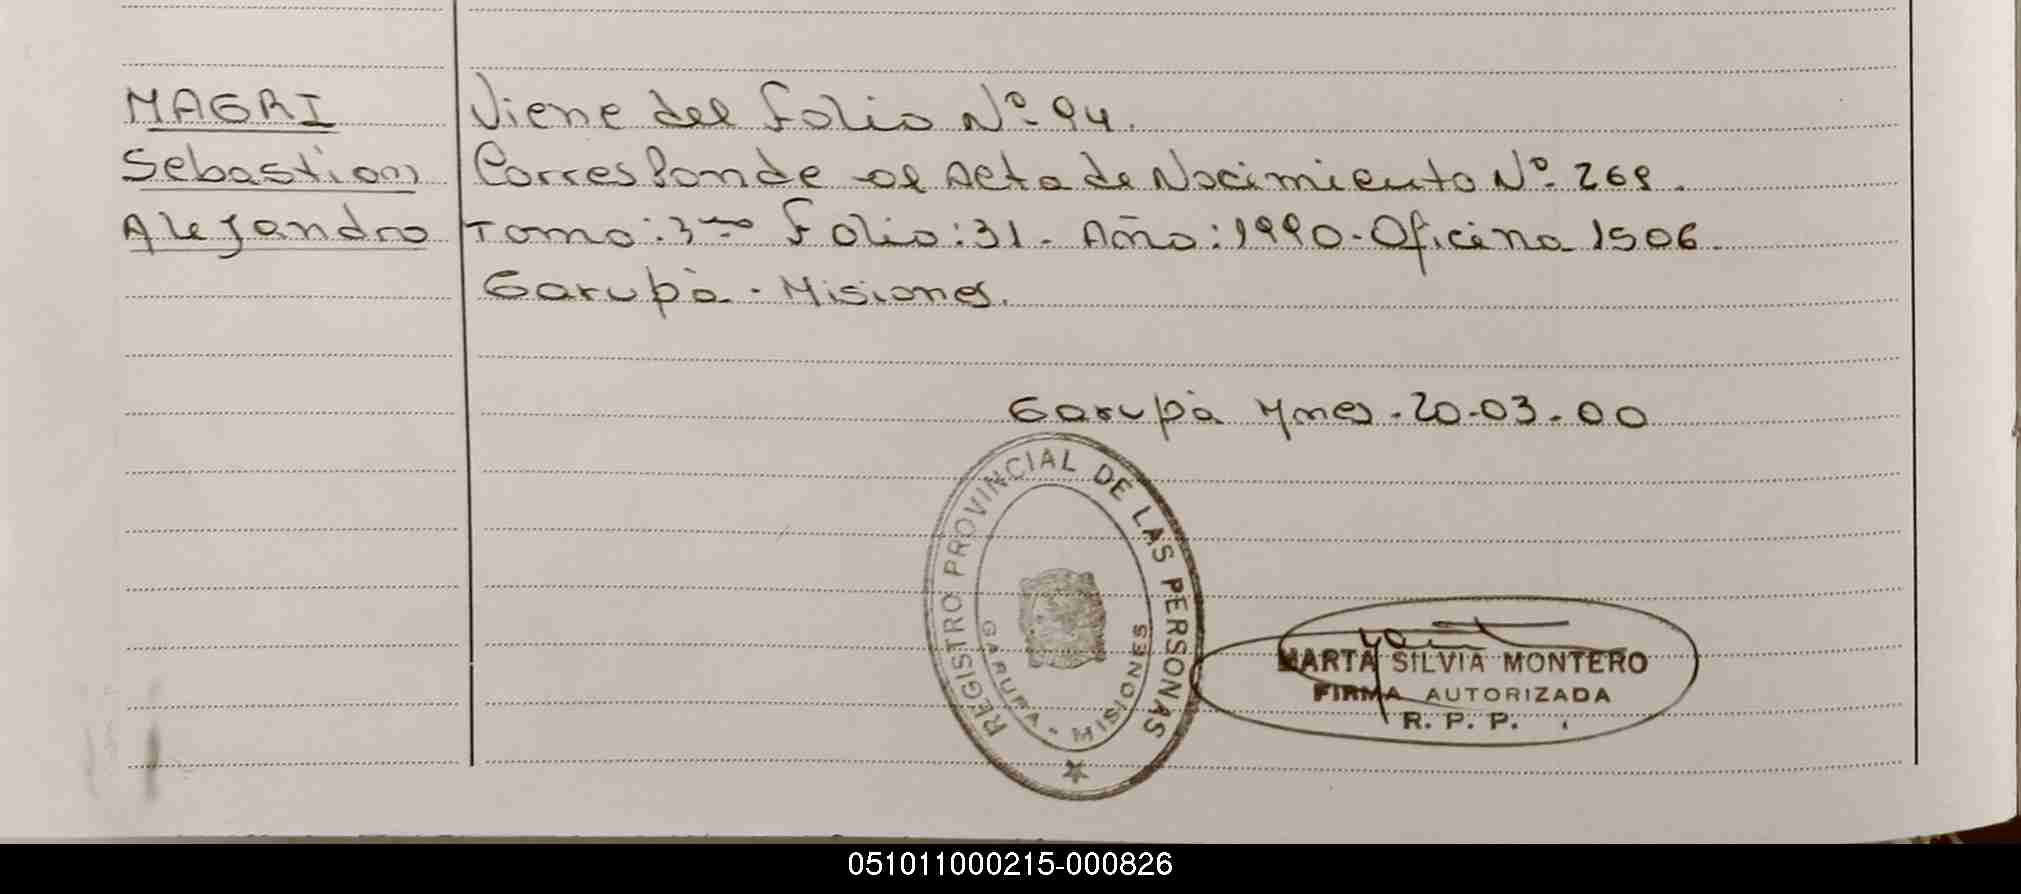 MAGRI
Sebastian
Alejandro
Viene del folio Nº 94.
Corresponde al Acta de Nacimiento Nº 268.
Tomo: 3ro folio: 31. Año: 1990. Oficina 1506
Garupà - Misiones.
Garupà Mnes. 20-03-00
REGISTRO PROVINCIAL DE LAS PERSONAS
GARUPA - MISIONES
MARTA SILVIA MONTERO
FIRMA AUTORIZADA
R. P. P.
051011000215-000826